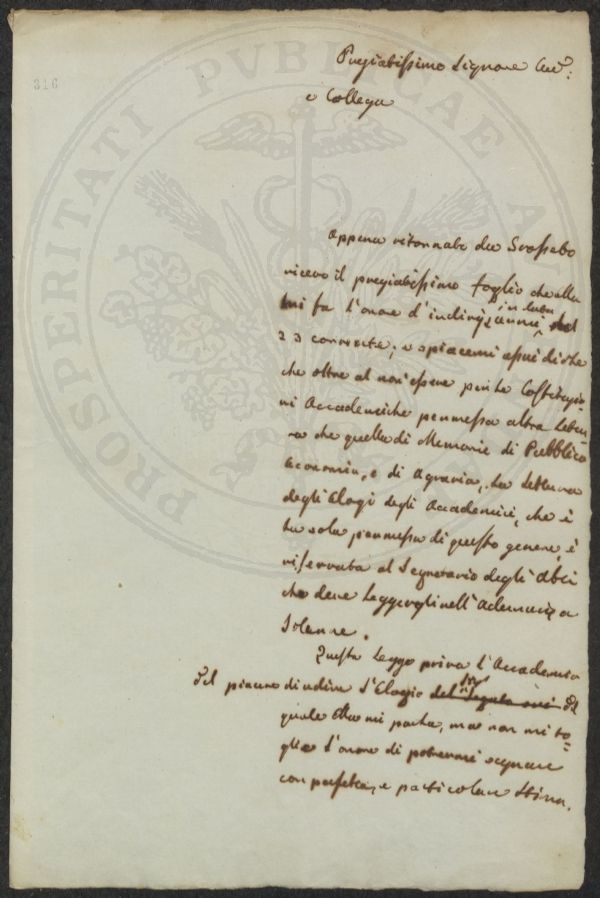 316
Pregiatissimo Signore
e Collega
Appena ritornato da Grosseto
ricevo il pregiatissimo foglio che Ella
mi fa l'onore d'indirizzarmi in data del
23 corrente, e spiacemi assai di
che oltre al non essere per le Costituzio-
ni Accademiche permessa altra Lettu-
ra che quella di Memorie di Pubblica
Economia, e di Agraria, la Lettura
degli Elogi degli Accademici, che è
la sola permessa di questo genere, è
riservata al Segretario degli Atti
che deve Leggergli nell'Adunanza
Solenne.
Questa Legge priva l'Accademia
del piacere di udire l'Elogio del
quale Ella mi parla, ma non mi to-
glie l'onore di potermi segnare
con perfetta, e particolare stima.
PROSPERITATI PVBLICAE